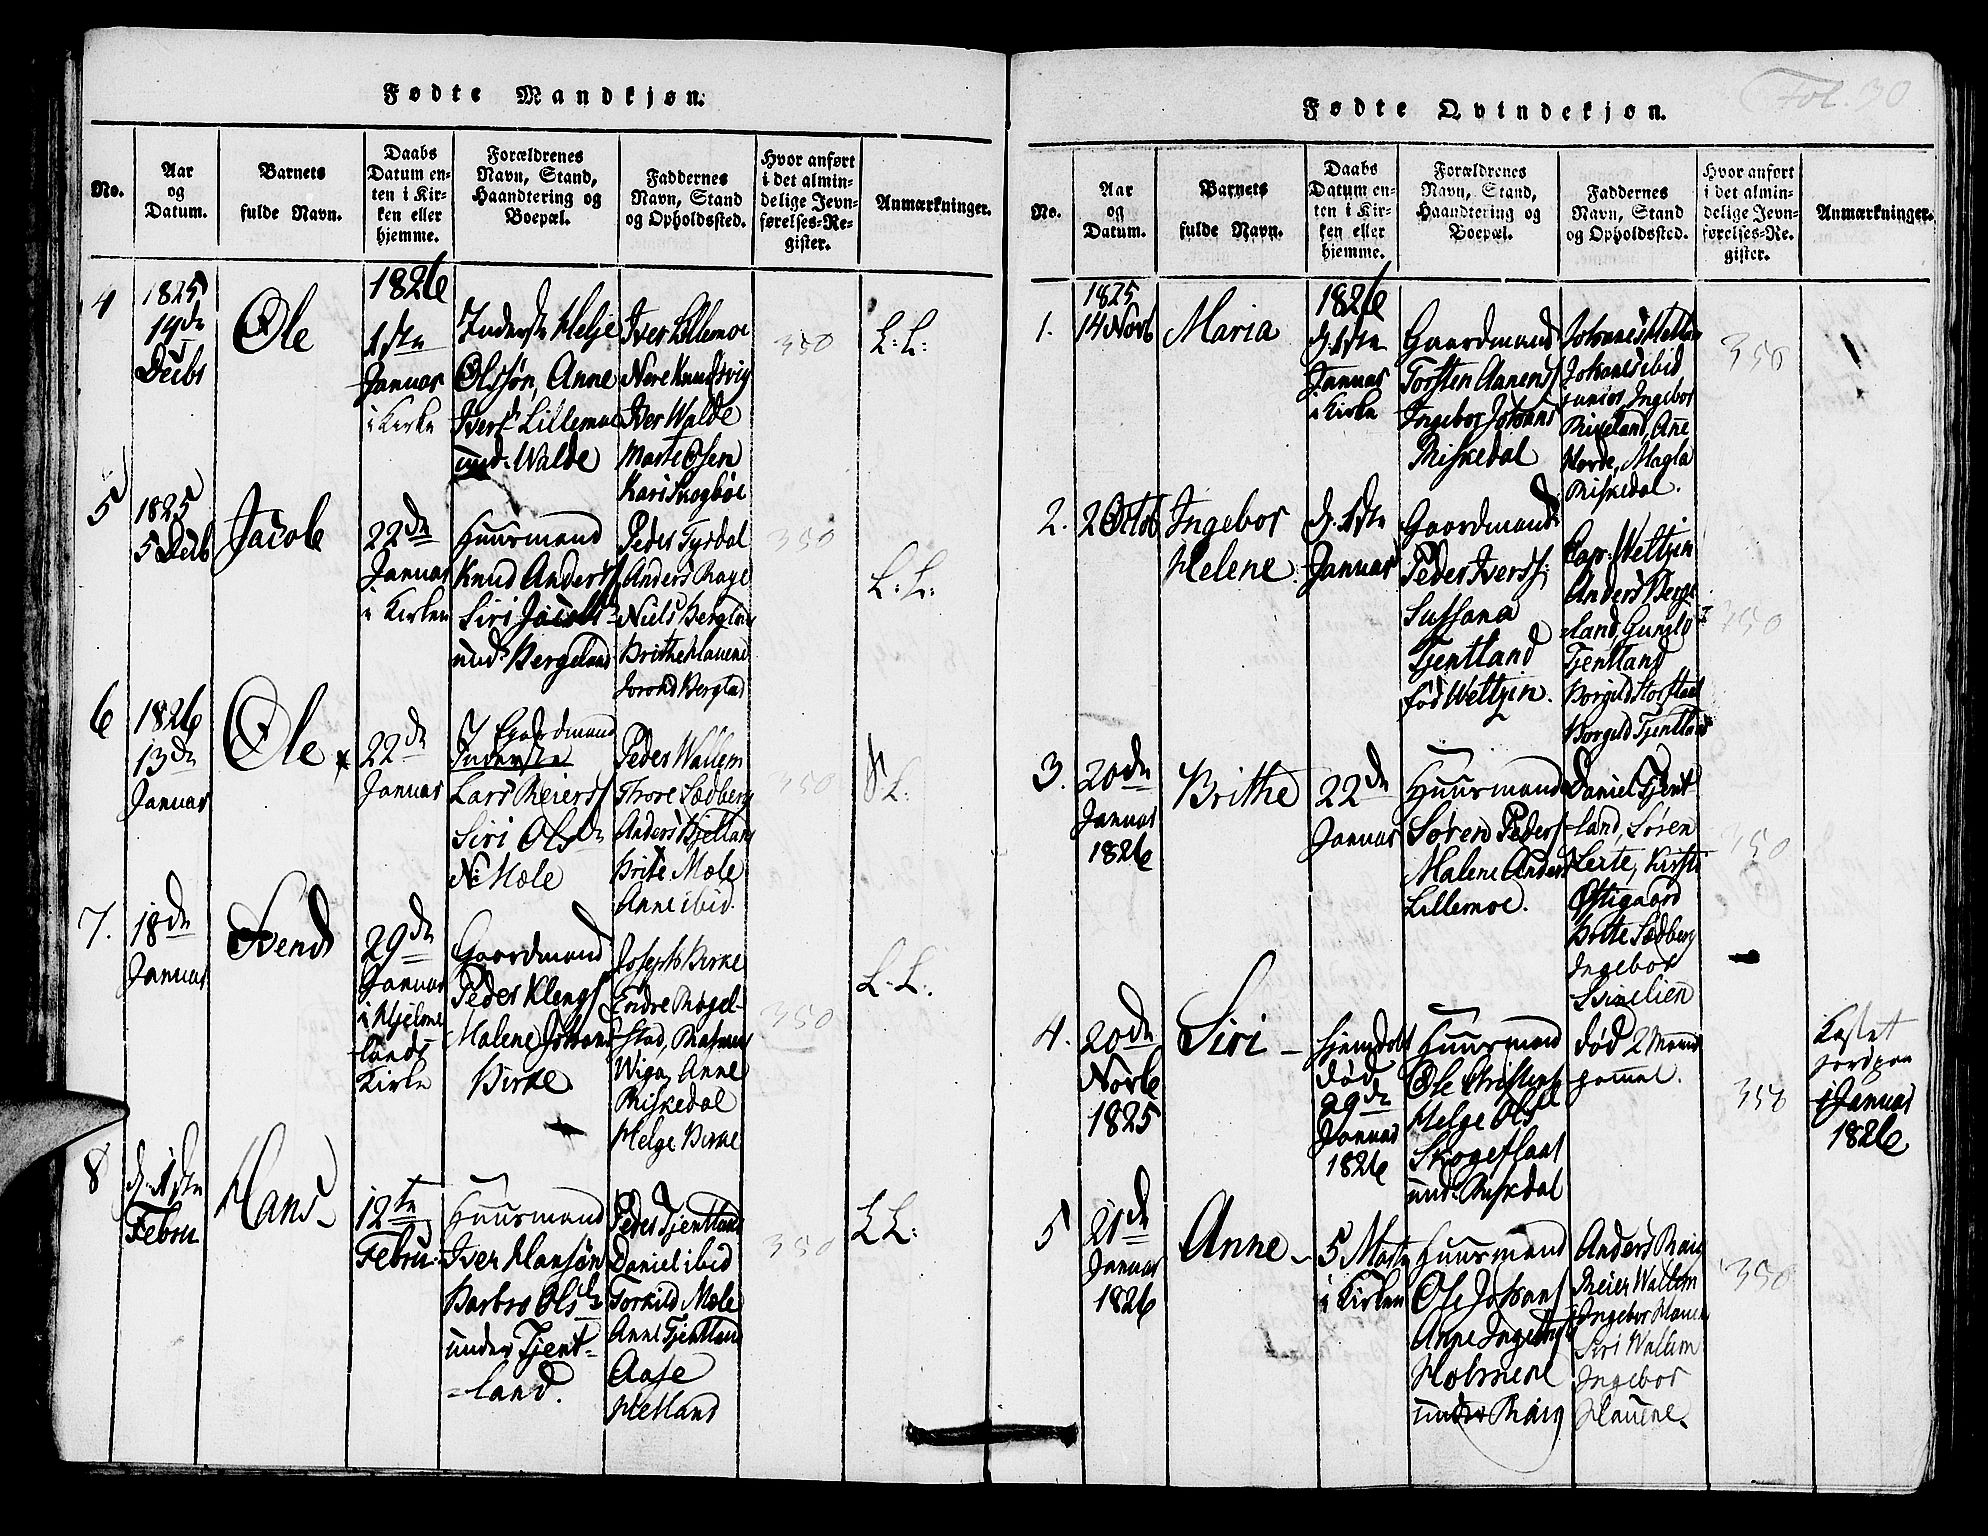 Fødte Mandkjøn.
No.
Aar og Datum.
Barnets fulde Navn.
Daabs Datum enten i Kirken eller hjemme.
Forældrenes Navn, Stand, Haandtering og Boepæl.
Faddernes Navn, Stand og Opholdssted.
Hvor anført i det almindelige Jevnførelses-Register.
Anmærkninger.
4
1825
19de
Decbr
Ole
1826
1ste
Januar
i Kirke
Inderste Helje
Olssøn, Anne
Ivers Lillemoe
und: Walde
Iver Lillemoe
Nere Knudsvig
Iver Walde
Marte Osen
Kari Skogbøe
350
L: L:
5
1825
5 Decb
Jacob
22de
Januar
i Kirken
Huusmand
Knud Anders
Siri Jacobs
und: Bergeland
Peder Tyrdal
Anders Rage
Niels Bergland
Brithe Hauene
Bergland
350
L: L:
6
1826
13de
Januar
Ole
22de
Januar
Gaardmand
Inderste
Lars Reiers
Siri Olsd
N: Mæle
Peder Wallem
Thore Sædberg
Anders Hjelland
Brite Mæle
Anne ibid.
350
L:
7.
18de
Januar
Svend
29de
Januar
i Hjelme
lands
Kirke
Gaardmand
Peder Klengs
Malene Johans
Birke
Joseph Birke
Endre Møgel-
stad, Rasmus
Wiga, Anne
Riskedal
Helge Birke
350
L. L:
8
d. 1ste
Febru
Hans
12te
Febru
Huusmand
Iver Hansøn
Barbro Olsd
under Tjent-
=land.
Peder Tjentland
Daniel ibid
Torkild Mæle
Anne Tjentland
Aase
Hetland
350
L L:
Fol. 30
Fødte Qvindekjøn.
No.
Aar og Datum.
Barnets fulde Navn.
Daabs Datum enten i Kirken eller hjemme.
Forældrenes Navn, Stand, Haandtering og Boepæl.
Faddernes Navn, Stand og Opholdssted.
Hvor anført i det almindelige Jevnførelses-Register.
Anmærkninger.
1.
1825
14 Novb
Maria
1826
d. 1ste
Januar
i Kirke
Gaardmand
Torsten Aanens
Ingebor Johans
Riskedal
Johanes
Johanes ibid
junior, Ingebor
Riskeland, Ane
Magla
Riskedal.
350
2.
2 Octob
Ingebor
Helene
d. 1ste
Januar
Gaardmand
Peder Ivers
Sussana
Tjentland
fød Weltzin.
Cap: Weltzin
Anders Berge
-land, Gunild
Tjentland
Borgild
Borgild Tjentland
350
3.
20de
Januar
1826
Brithe
22de
Januar
Huusmand
Søren Peders
Malene Anders
Lillemoe.
Daniel Tjent
land, Søren
Kirsti
Østigaard
Brite Sædberg
Ingebor
Svinelien
350
4.
20de
Novbe
1825
Siri
hjemdøbt
død
29de
Januar
1826
Huusmand
Ole Christens
Helge Ols
Skogeflaat
und: Riskdal
død 2 Maaned
gammel.
350
Kastet
Jord paa
1 Januar
1826
5
21de
Januar
1826
Anne
5 Marts
i Kirken
Huusmand
Ole Johans
Anne Ingebrigts
Holmene
under Raig
Anders Raig
Reier Wallem
Ingebor Hauene
Siri Wallem
Ingebor
Hauene.
350